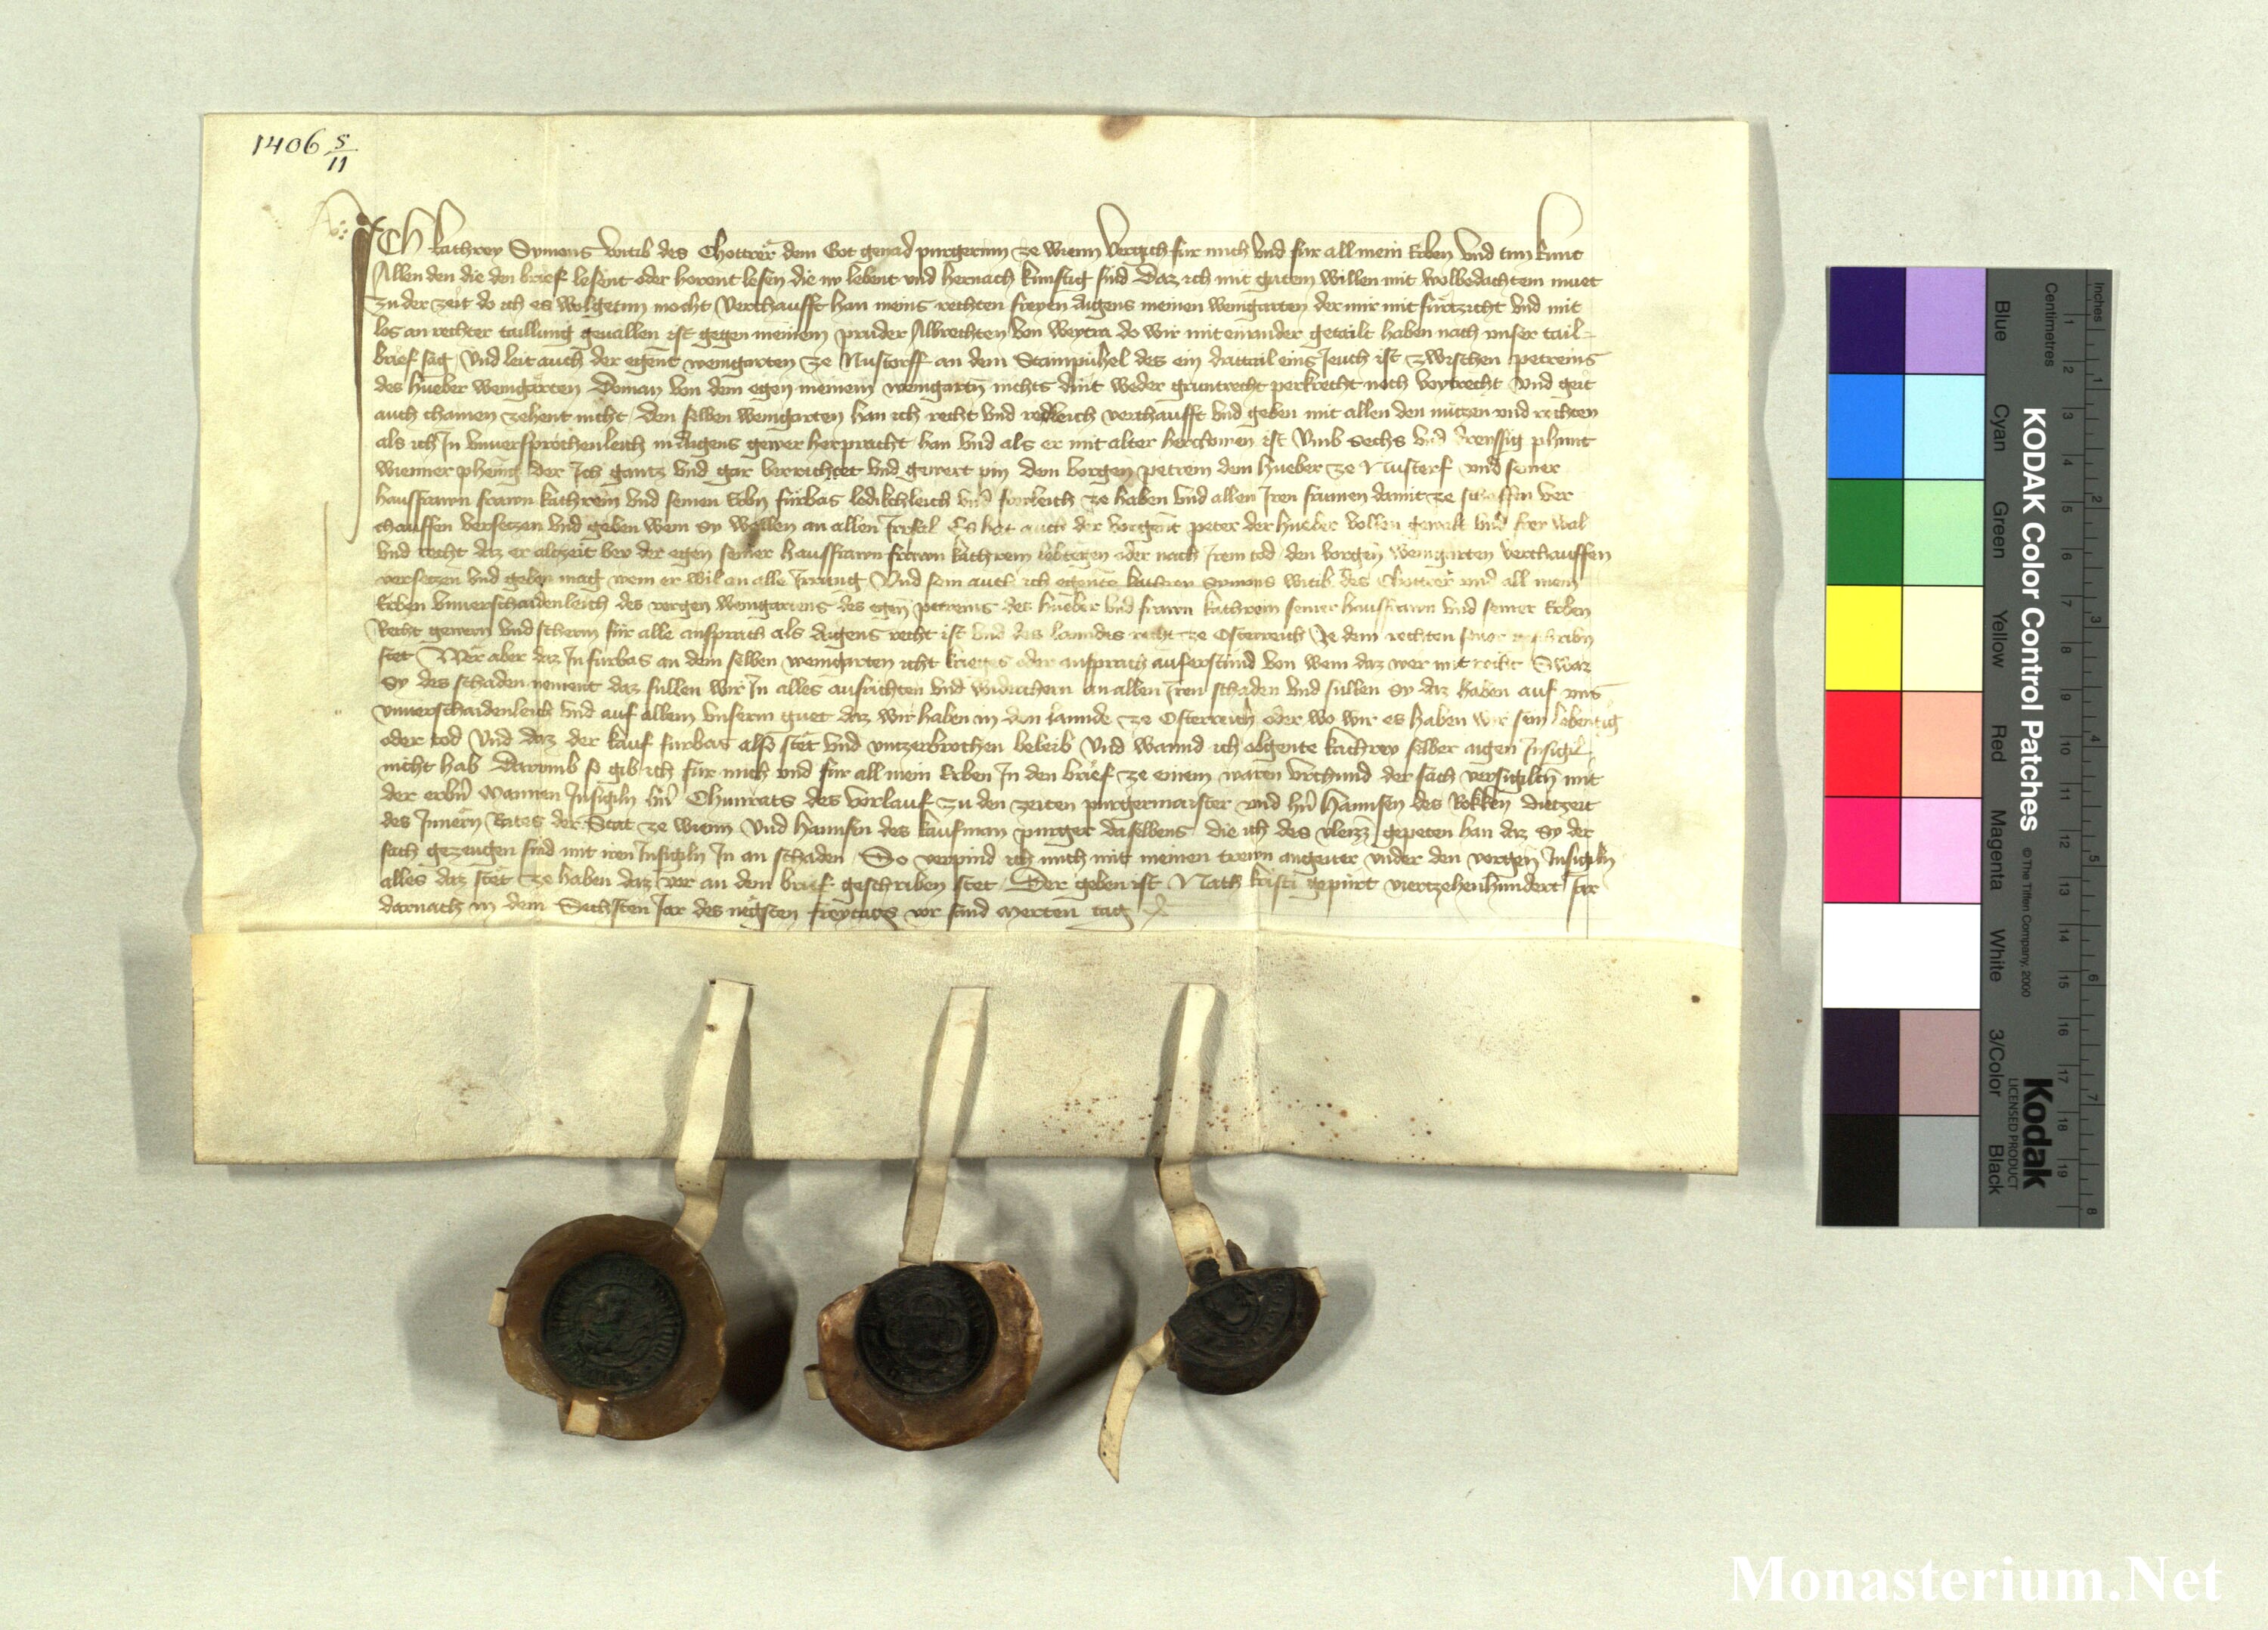 1406 5/11
ICh kathrey Symons witib des Chottrer dem Got genad purgerinn ze wienn Vergich fur mich Vnd fur all mein Erben Vnd tun kunt
Allen den die den brief lesent oder horent lesen die nv lebent vnd hernach kunftig sind Daz ich mit gutem willen mit wolbedachtem muet
zu der zeit do ich es wolgetun mocht Verchaufft han meins rechten freyen aigens meinen weingarten der mir mit furtzicht vnd mit
los an rechter taillung geuallen ist gegen meinem pruder Albrechten von Weytra do wir mit einander getailt haben nach vnser tail-
brief sag Vnd leit auch der egent weingarten ze Nustorff an dem Stainpuhel des ein drittail eins Jeuch ist zwischen petreins
des hueber weingarten Doman von dem egen meinem weingartn nichts dint weder gruntrecht perkrecht noch voytrecht Vnd geit
auch chainen zehent nicht Den selben weingarten han ich recht vnd redleich verchaufft vnd geben mit allen den nutzen vnd rechten
als ich In vnuersprochenleich in aigens gewer herpracht han vnd als er mit alter herchomen ist Vmb Sechs vnd dreussig phunt
wienner phening der Ich gantz vnd gar verrichtet vnd gewert pin Dem vorgen petrein dem hueber ze Nustorf vnd seiner
hausfrawn frawn kathrein vnd seinen Erbn furbas ledikchleich vnd freileich ze haben vnd allen Iren frumen damit ze schaffen ver
chauffen versetzen vnd geben wem sy wellen an allen Irrsal Es hat auch der vorgent peter der hueber vollen gewalt vnd frey wal
vnd recht daz er altzeit bey der egen seiner hausfrawn frawn kathrein lebtegen oder nach Irem tod den vorgen weingarten verchauffen
versetzen vnd geben mag wem er wil an alle Irrung Vnd sein auch ich egente kathrey Symons witib des Chottrer vnd all mein
Erben vnuerschaidenleich des vorgen weingartens des egen petreins des hueber vnd frawn kathrein seiner hausfrawn vnd seiner Erben
Recht gewern vnd scherm fur alle ansprach als aigens recht ist vnd des lanndes recht ze Osterreich
stet Wer aber daz In furbas an dem selben weingarten icht krieges oder ansprach auferstund von wem daz wer mit recht Swaz
sy des schaden nement daz sullen wir In alles ausrichten vnd widerchern an allen Iren schaden vnd sullen sy daz haben auf vns
vnuerschaidenleich vnd auf allem vnserm guet daz wir haben in dem lannde ze Osterreich oder wo wir es haben wir sein lebentig
oder tod Vnd daz der kauf furbas also stet vnd vntzerbrochen beleib Vnd wannd ich obgente kathrey selber aigen Insigil
nicht hab Darvmb so gib ich fur mich vnd fur all mein Erben In den brief ze einem waren vrchund der sach versigiltn mit
der erbn mannen Insigiln hn Chunrats des Vorlauf zu den zeiten purgermaister vnd hn Hannsen des Rokken dietzeit
des Innern Rates der Stat ze wienn Vnd hannsen des kaufman purger daselbens die ich des vleizz gepeten han daz sy der
sach gezeugen sind mit iren Insigiln In an schaden So verpind ich mich mit meinen trewn angeuer vnder den vorgen Insigiln
alles daz stet ze haben daz vor an dem brief geschriben stet Der geben ist Nach kristi gepurt viertzehenhundert Jar
darnach in dem Sechsten Jar des negsten freytags vor sand Merten tag
KODAK Color Control Patches © The Tiffen Company, 2000
Kodak
LICENSED PRODUCT
Inches
Centimetres
Blue Cyan Green Yellow Red Magenta White 3/Color Black
1 2 3 4 5 6 7 8 9 10 11 12 13 14 15 16 17 18 19
1 2 3 4 5 6 7 8
Monasterium.Net